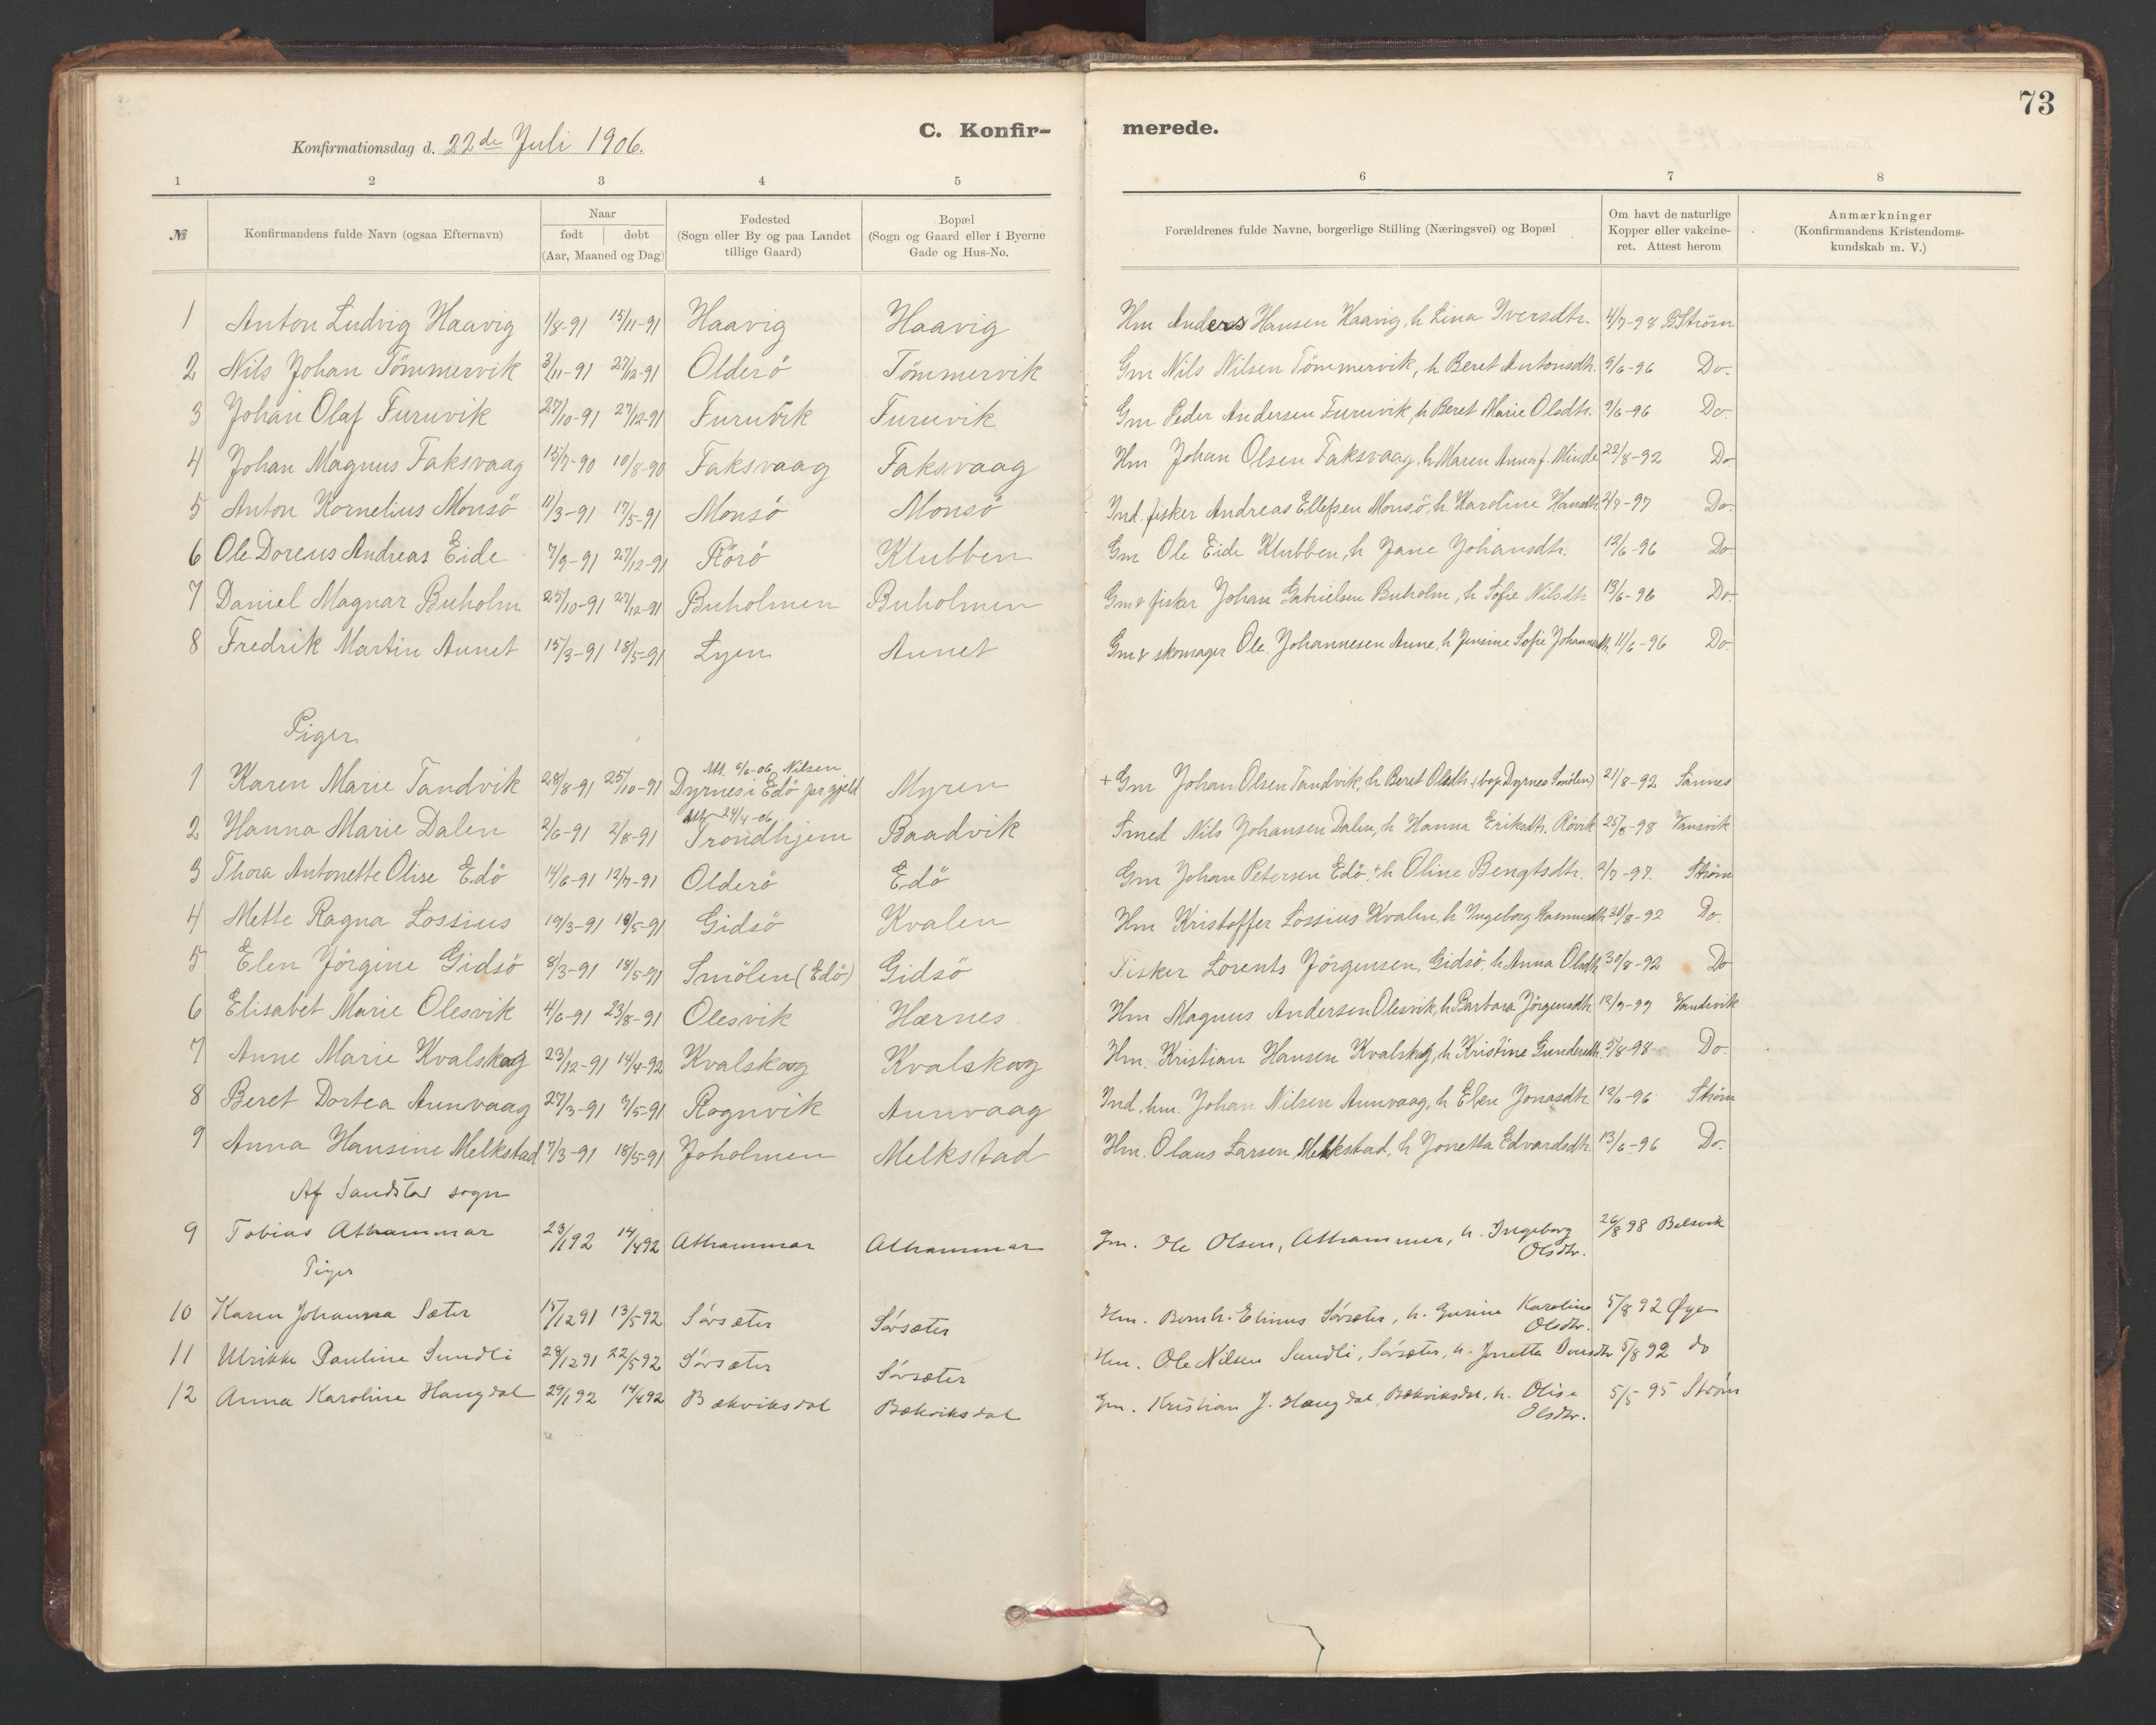 73
C. Konfir- merede.
Konfirmationsdag d. 22de Juli 1906.
1 2 3 4 5 6 7 8
№ Konfirmandens fulde Navn (ogsaa Efternavn) Naar født døbt (Aar, Maaned og Dag) Fødested (Sogn eller By og paa Landet tillige Gaard) Bopæl (Sogn og Gaard eller i Byerne Gade og Hus-No. Forældrenes fulde Navne, borgerlige Stilling (Næringsvei) og Bopæl Om havt de naturlige Kopper eller vakcineret. Attest herom Anmærkninger (Konfirmandens Kristendomskundskab m. V.)
1 Anton Ludvig Haavig 1/8-91 15/11-91 Haavig Haavig Hm Anders Hansen Haavig, h Lina Iversdtr. 4/7-98 BStrøm
2 Nils Johan Tömmervik 3/11-91 27/12-91 Olderö Tömmervik Gm Nils Nilsen Tömmervik, h Beret Antonsdtr. 9/6-96 Do.
3 Johan Olaf Furuvik 27/10-91 27/12-91 Furuvik Furuvik Gm Peder Andersen Furuvik, h Beret Marie Olsdtr. 9/6-96 Do-
4 Johan Magnus Faksvaag 15/7-90 10/8-90 Faksvaag Faksvaag Hm Johan Olsen Faksvaag, h Maren Anna f. Minde 22/8-92 Do
5 Anton Kornelius Monsö 11/3-91 17/5-91 Monsö Monsö Ind. fisker Andreas Ellefsen Monsö, h. Karoline Hansdtr. 2/7-97 Do.
6 Ole Doreus Andreas Eide 7/9-91 27/12-91 Rörö Klubben Gm Ole Eide Klubben, h Jane Johansdtr. 12/6-96 Do-
7 Daniel Magnar Buholm 25/10-91 27/12-91 Buholmen Buholmen Gm & fisker Johan Gabrielsen Buholm, h Sofie Nilsdtr 13/6-96 Do-
8 Fredrik Martin Aunet 15/3-91 18/5-91 Lyen Aunet Gm & skomager Ole Johannesen Aune, h Jensine Sofie Johannesdtr. 11/6-96 Do.
Piger
Att. 6/6-06 Nilsen
1 Karen Marie Tandvik 28/8-91 25/10-91 Dyrnes i Edö prgjeld Myren + Gm Johan Olsen Tandvik, h Beret Olsdtr. (bop. Dyrnes Smölen) 21/8-92 Sannes
Att 24/4-06
2 Hanna Marie Dalen 2/6-91 2/8-91 Trondhjem Baadvik Smed Nils Johansen Dalen, h Hanna Eriksdtr. Rövik 25/8-98 Vansvik
3 Thora Antonette Olise Edö 14/6-91 12/7-91 Olderö Edö Gm Johan Petersen Edö, + h Oline Bengtsdtr. 2/7-97. Strøm
4 Mette Ragna Lossius 19/3-91 19/5-91 Gidsö Kvalen Hm Kristoffer Lossius Kvalen, h. Ingeborg Rasmusdtr. 30/8-92 Do.
5 Elen Jörgine Gidsö 8/3-91 18/5-91 Smölen (Edö) Gidsö Fisker Lorents Jörgensen, Gidsö, h Anna Olsdtr. 30/8-92 Do
6 Elisabet Marie Olesvik 4/6-91 23/8-91 Olesvik Hærnes Hm Magnus Andersen Olesvik, h Barbara Jörgensdtr. 12/9-99 Vandsvik
7 Anne Marie Kvalskog 23/12-91 14/4-92 Kvalskog Kvalskog Hm. Kristian Hansen Kvalskog, h Kristine Gundersdtr. 5/8-98 Do.
8 Beret Dortea Aunvaag 27/3-91 7/5-91 Rognvik Aunvaag Ind. hm. Johan Nilsen Aunvaag, h Elen Jonasdtr. 12/6-96 Strøm
9 Anna Hansine Melkstad 7/3-91 18/5-91 Joholmen Melkstad Hm. Olaus Larsen, Melkstad, h Jonetta Edvardsdtr. 13/6-96 Do.
Af Sandstad sogn
9 Tobias Athammar 23/192 14/492 Athammar Athammar Gm. Ole Olsen, Athammer, h. Ingeborg Olsdtr. 26/8 98 Belsvik
Piger
10 Karen Johanna Sæter 15/1291 13/592 Sørsæter Sørsæter Hm. Bernh. Elinus Sørsæter, h. Gurine Karoline Olsdtr. 5/8 92 Øyen
11 Ulrikke Pauline Sundli 28/1291 22/592 Sørsæter Sørsæter Hm. Ole Nilsen Sundli, Sørsæter, h. Jonetta 5/8 92 do
12 Anna Karoline Haugdal 29/192 14/492 Bækviksdal Bækviksdal Gm. Kristian J. Haugdal, Bækviksdal, h. Olise Olsdtr. 5/5 95 Strøm